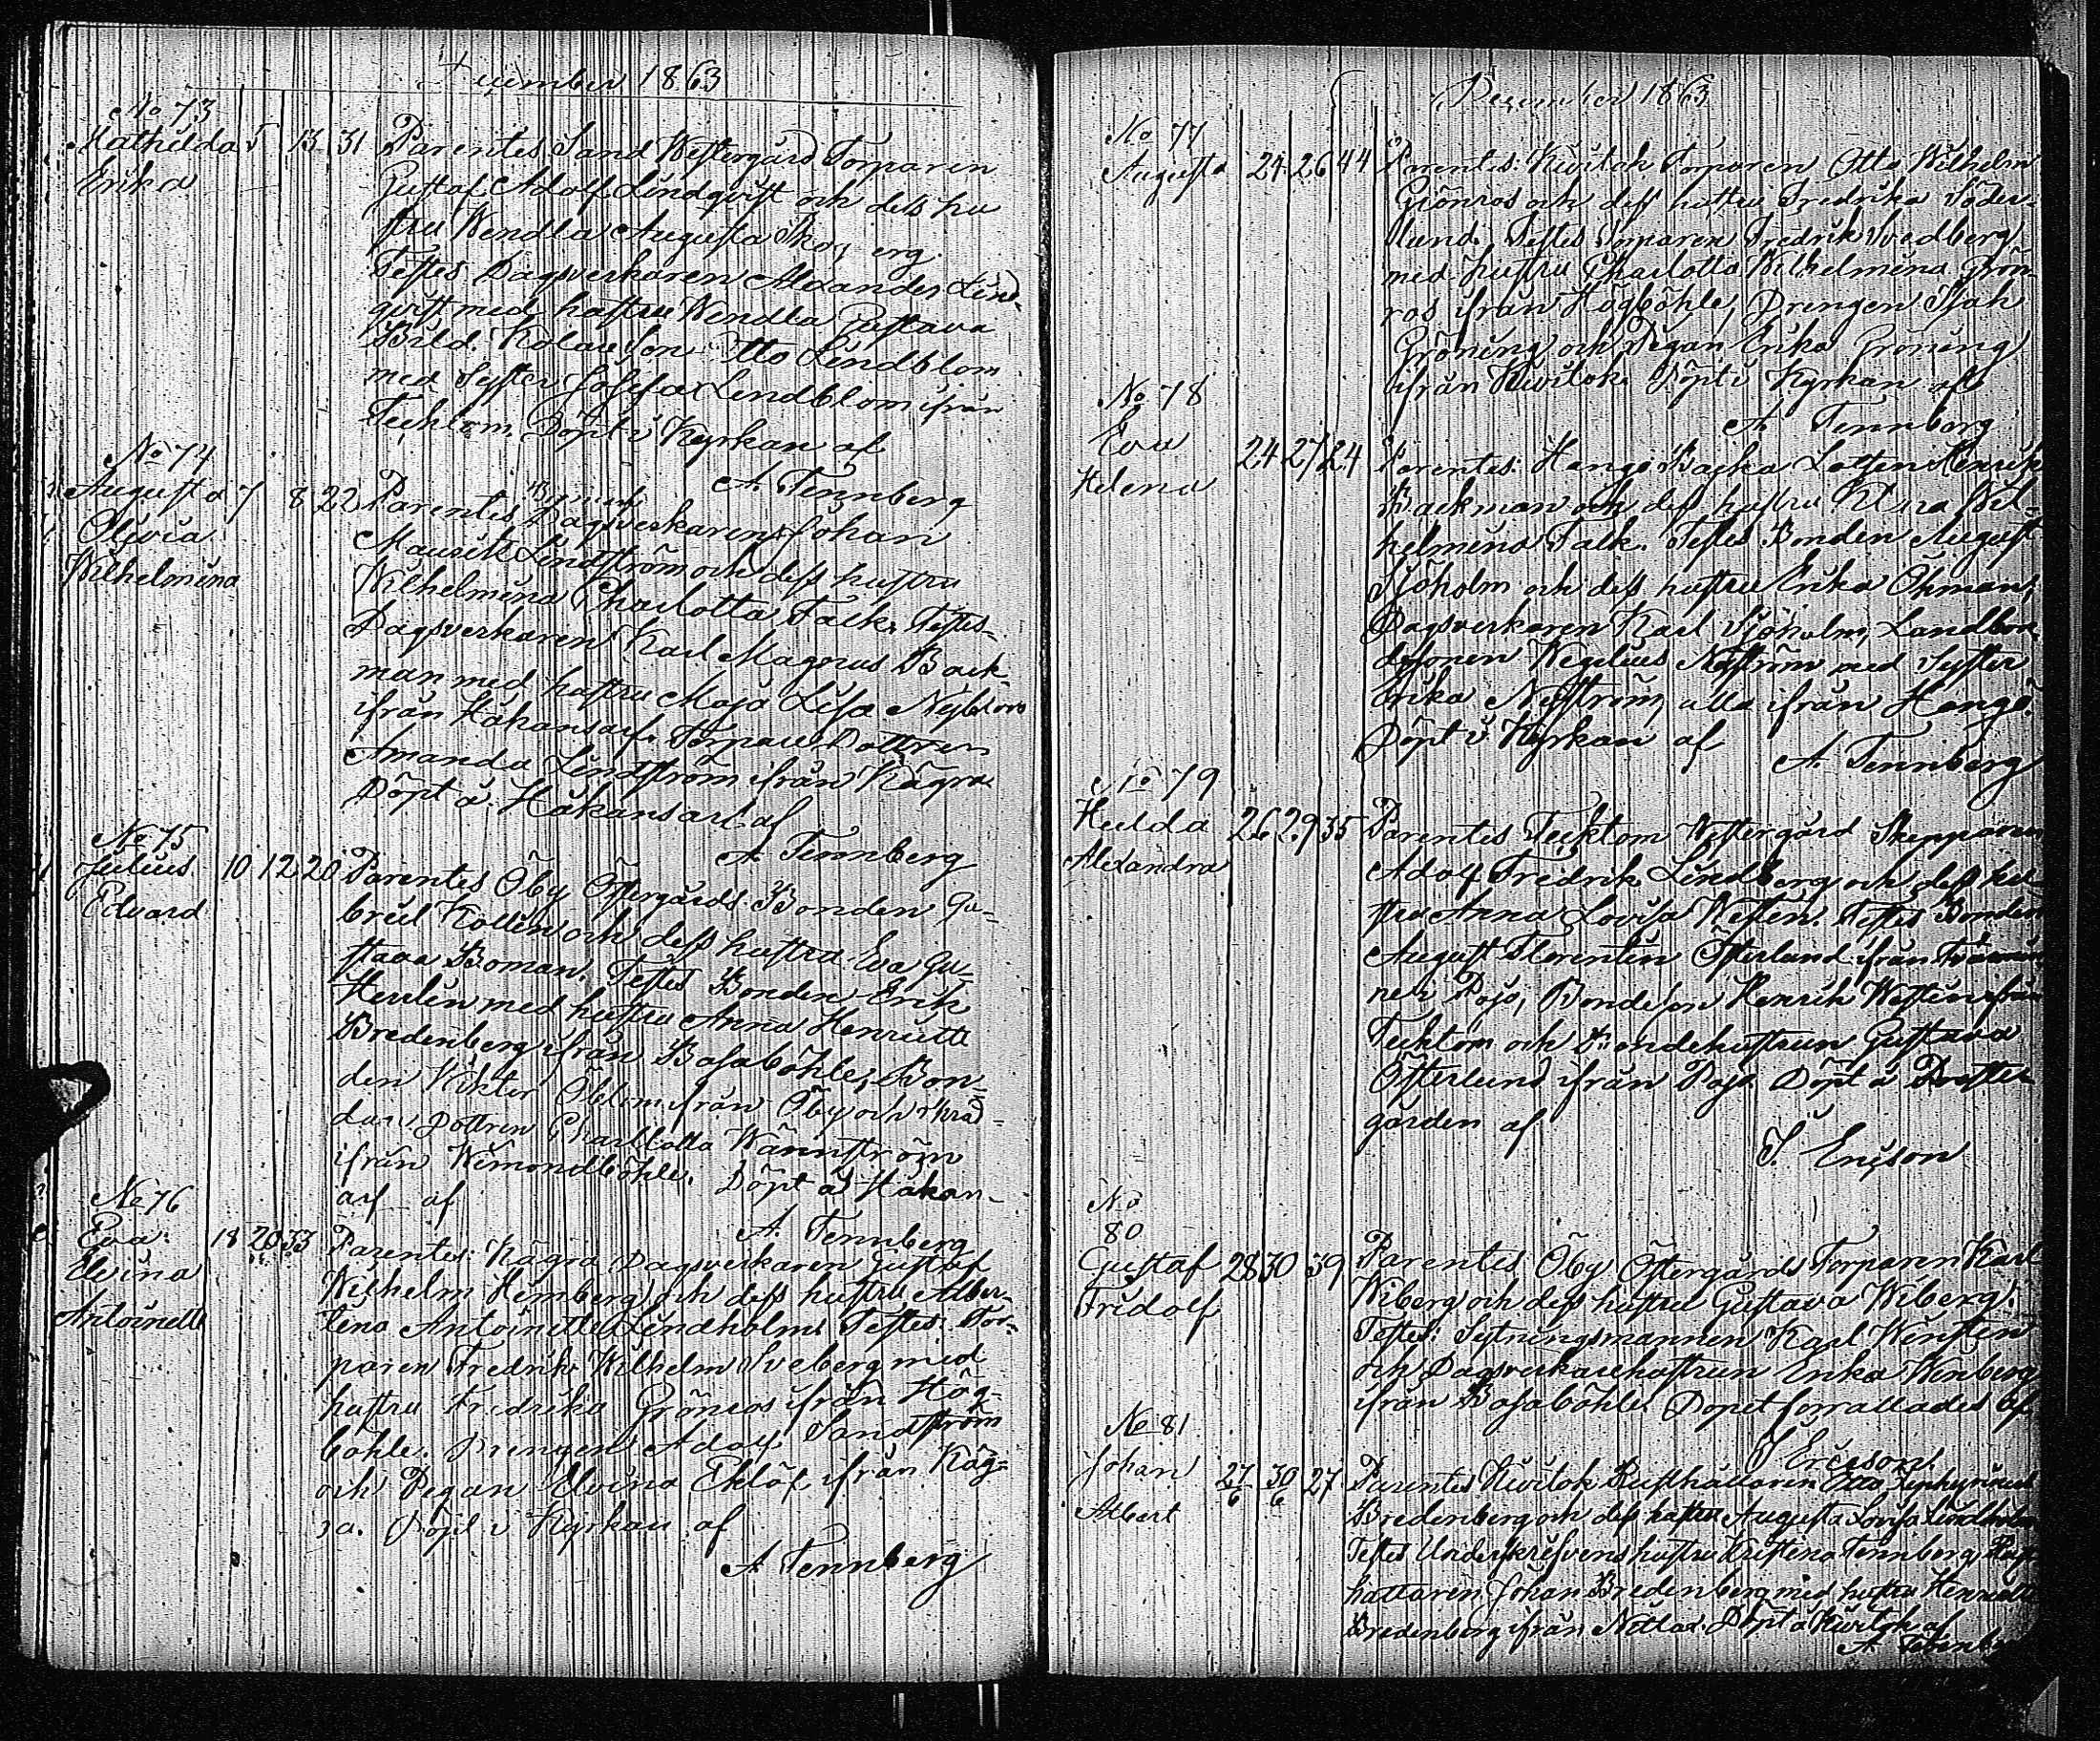 December 1863
No 73
Mathilda 5 13 31 Parentes Sand Westergård Torparen
Erika Gustaf Adolf Lindqvist och dess hu
stru Wendla Augusta
Testes Dagsverkaren Alexander Lind-
qvist med hustru Wendla Gustava
Sköld. Otto Lindblom
med Syster Josefa Lindblom ifrån
Tecktom. Döpt i Kyrkan af
A. Tennberg
No 74
Augusta 7 8 22 Parentes Dagsverkaren Johan
Olivia Maurits Lindström och dess hustru
Wilhelmina Wilhelmina Charlotta Falk. Testes
Dagsverkaren Karl Magnus Back
man med hustru Maja Lisa Nyblom
ifrån Håkansarf. Torpare Dottren
Amanda Lindström ifrån Kägra
Döpt å Håkansarf af
A Tennberg
No 75
Julius 10 12 20 Parentes Öby Östergårds Bonden Ga-
Edvard briel Kollin och dess hustru Eva Gu-
stava Boman. Testes Bonden Erik
Herrlin med hustru Anna Henriette
Bredenberg ifrån Basaböhle, Bon-
den Viktor Öblom ifrån Öby och
dottren Charlotta Wännström
ifrån Wimondböhle. Döpt å Håkan-
arf af
A. Tennberg
No 76
Eva 18 20 33 Parentes: Kägra Dagsverkaren Gustaf
Elvina Wilhelm Himberg och dess hustru Alber-
Antoinette tina Antoinette Lindholm. Testes: Tor-
paren Fredrik Wilhelm Sveberg med
hustru Fredrika Grönros ifrån Hög-
böhle. Drengen Adolf Sandström
och Pegan Elvina Eklöf ifrån Käg-
ra. Döpt i Kyrkan af
A Tennberg
December 1863
No 77
Augusta 24 26 44 Parentes: Kivitok Torparen Otto Wilhelm
Grönros och dess hustru Fredrika Söder-
lund. Testes Torparen Fredrik Svedberg
med hustru Charlotta Wilhelmina Grön
ros ifrån Högböhle, Drengen Isak
Gröning och Pegan Erika Gröning
ifrån Kivitok. Döpt i Kyrkan af
A. Tennberg
No 78
Eva 24 27 24 Parentes: Hangö Lotsen Henrik
Helena Backman och dess hustru Klara Wil-
helmina Falk. Testes Bonden August
Sjöholm och dess hustru Erika Öhman,
Dagsverkaren Karl Sjöholm, Landbon-
desonen Wegelius Nyström med Syster
Erika Nyström, alla ifrån Hangö.
Döpt i Kyrkan af
A. Tennberg
No 79
Hulda 26 29 35 Parentes Tecktom Westergård Skepparen
Alexandra Adolf Fredrik Lindberg och dess hu-
stru Anna Lovisa Westen. Testes Bonden
August Florentin Österlund ifrån
Pojo, Bondeson Henrik Westen ifrån
Tecktom och Bondehustrun Gustava
Österlund ifrån Pojo Döpt å Prostn
gården af
S. Ericson
No
80
Gustaf 28 30 39 Parentes Öby Östergårds Torparen Karl
Fridolf Wiberg och dess hustru Gustava Wiberg.
Testes: Sytningsmannen Karl Winsten
och Dagsverkarehustrun Erika Wenberg
ifrån Basaböhle. Dopet förrättades af
S Ericson.
No 81
Johan 27/6 30/6 27 Parentes Kivitok Rusthållaren Otto
Albert Bredenberg och dess hustru Augusta Lovisa Lindholm
Testes Underskrifvens hustru Kristina Tennberg, Rust
hållaren Johan Bredenberg med hustru Henriette
Bredenberg ifrån Nittar. Döpt å Kivitok af
A Tennberg